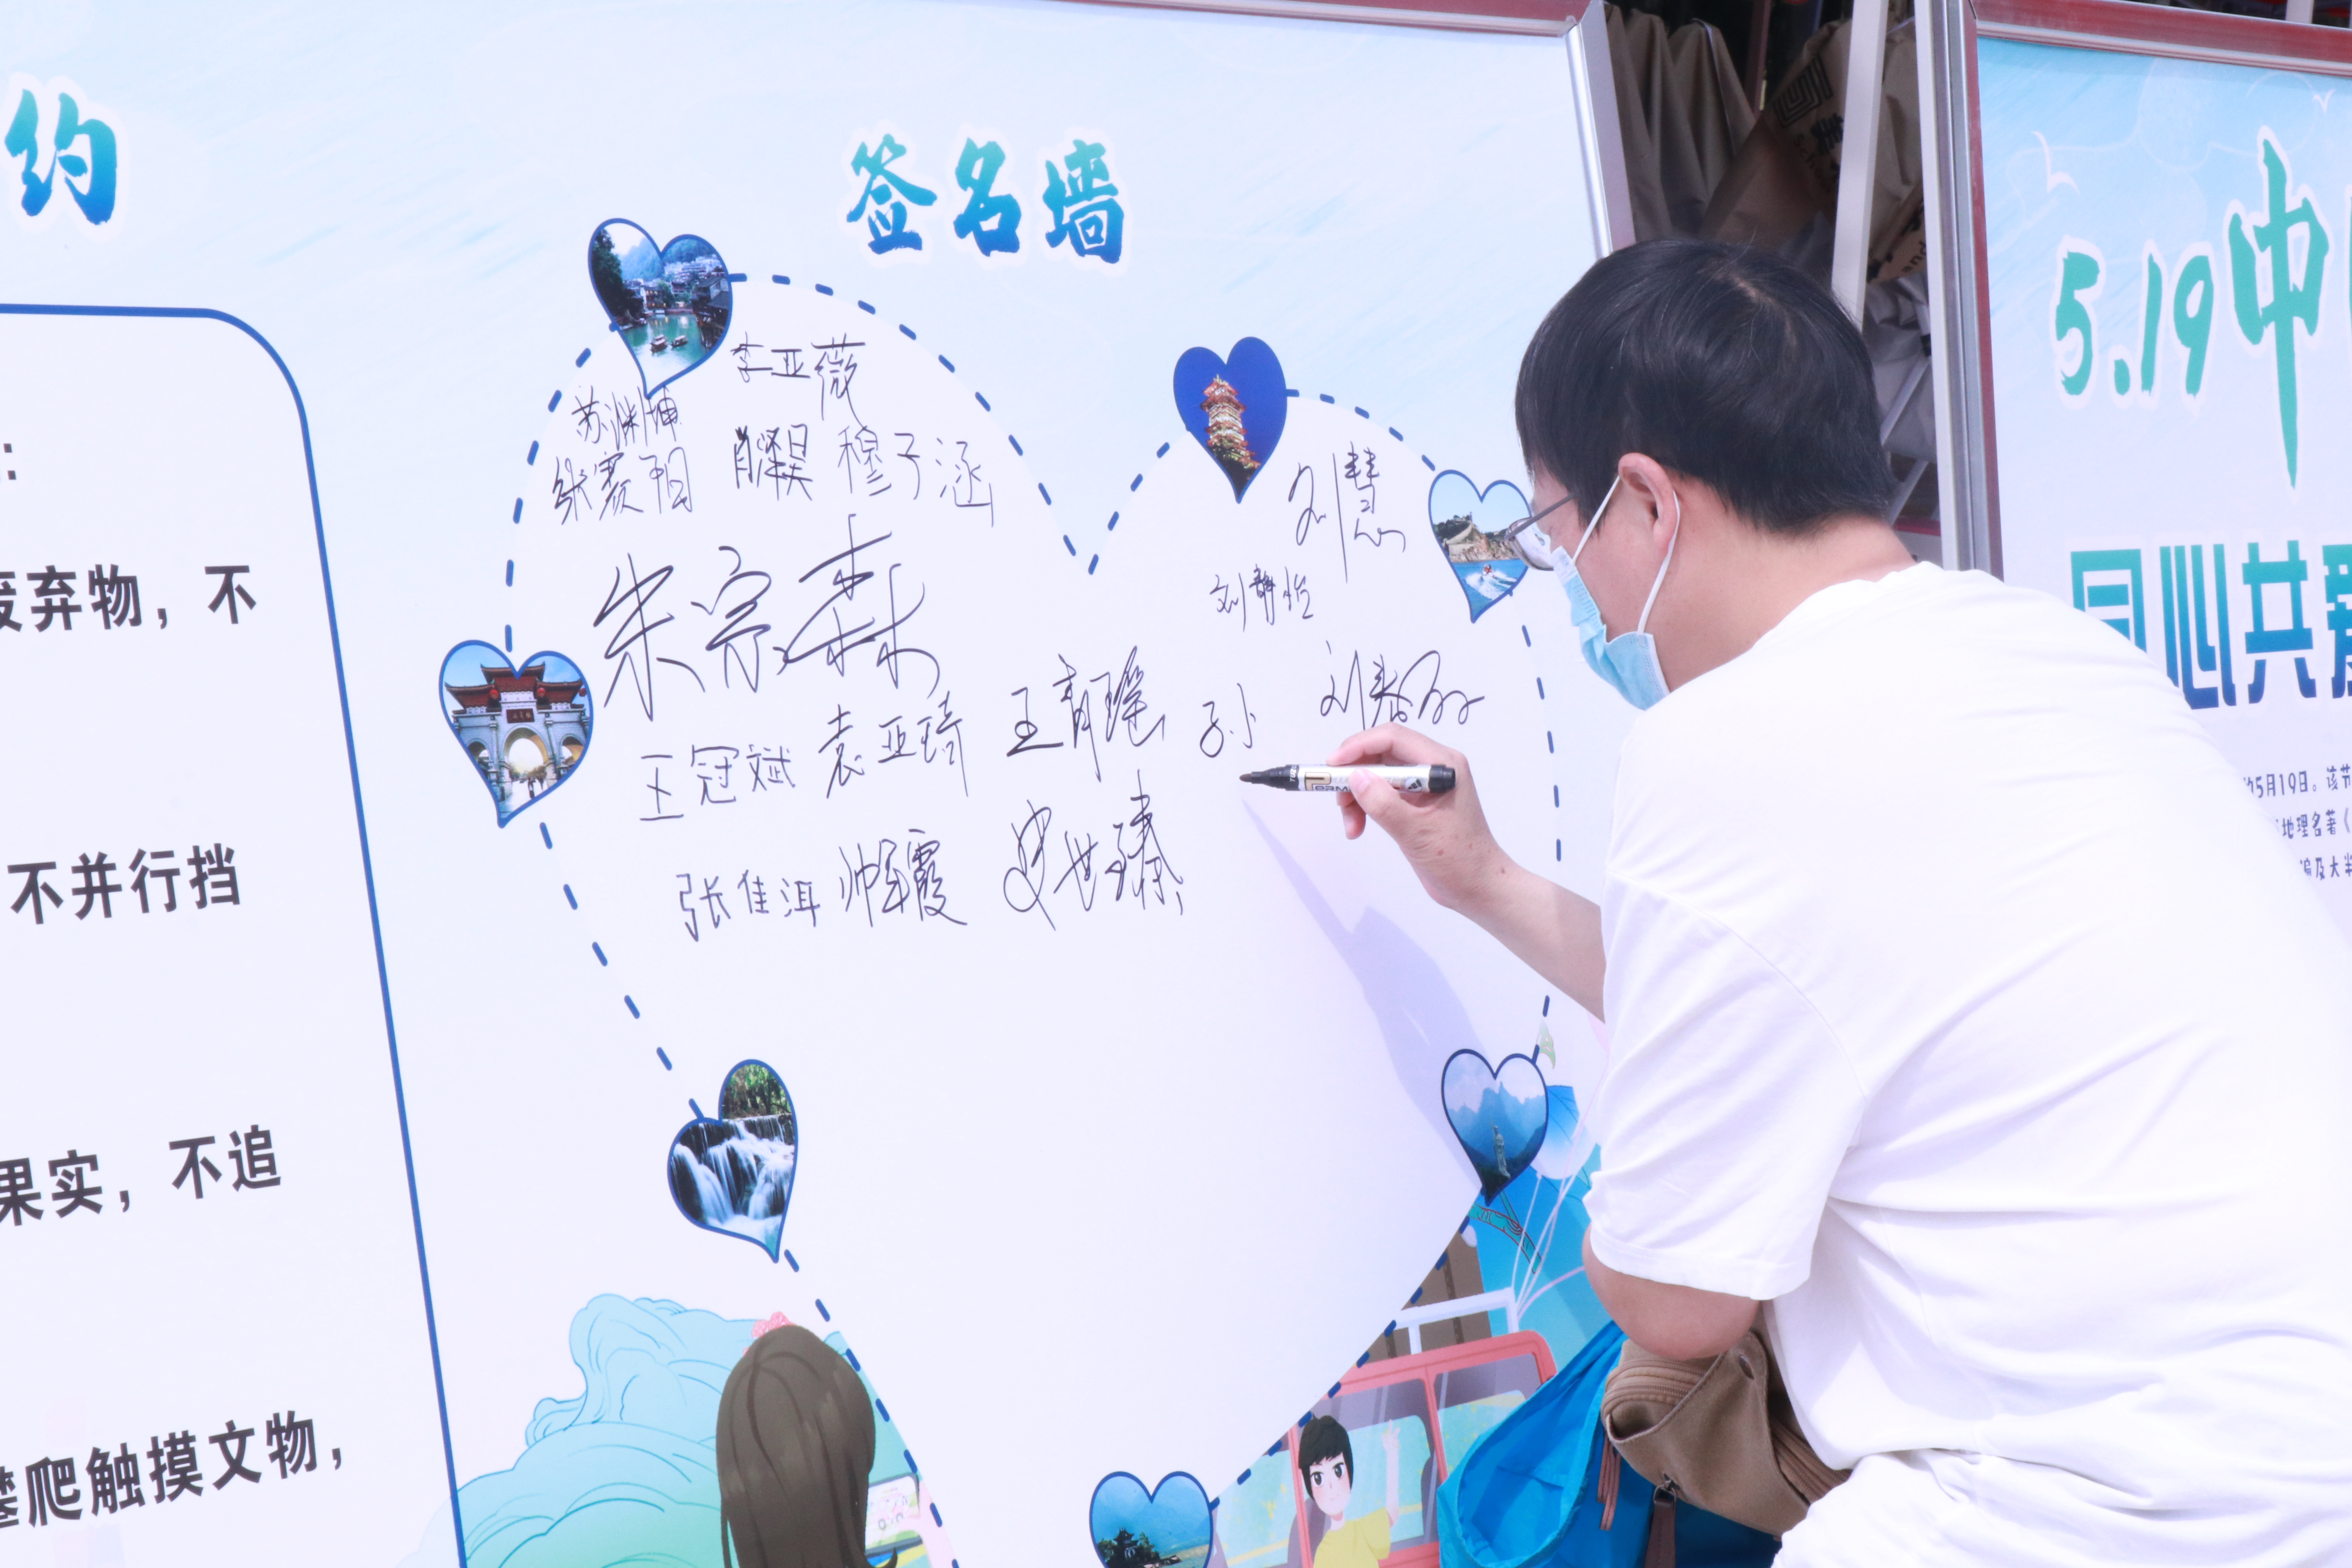 约
:
弃物，不
不并行挡
果实，不追
爬触摸文物，
签名墙
李亚薇
苏渊坤
穆子涵
刘慧
朱宗森
刘静怡
王冠斌
袁亚琦
王青瑶
孙
刘春丽
张佳洱
帅军霞
史世臻
5.19中
同心共爱
5月19日。该节
地理名著《
遍及大半